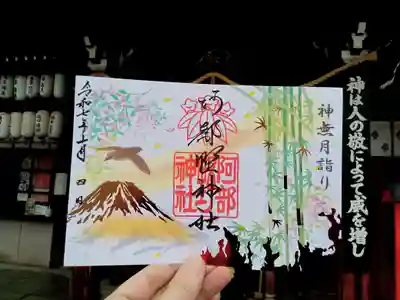 神は人の敬によって威を増し
神無月詣り
阿部野神社
阿部野神社
令和七年十月四日